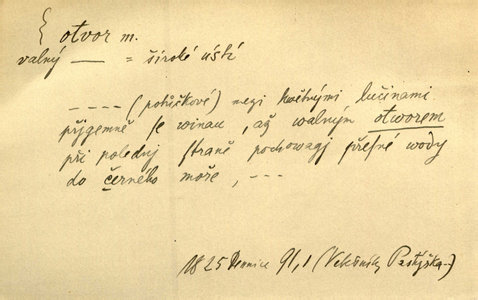 { otvor m.
valný — = široké ústí
---- (potůčkové) mezi květnými lučinami
přjgemně se winau, až walným otworem
při polednj straně pochowagj přesné wody
do černého moře, ---
1825 Dennice 91,1 (Vekšinský Pastýřka-)